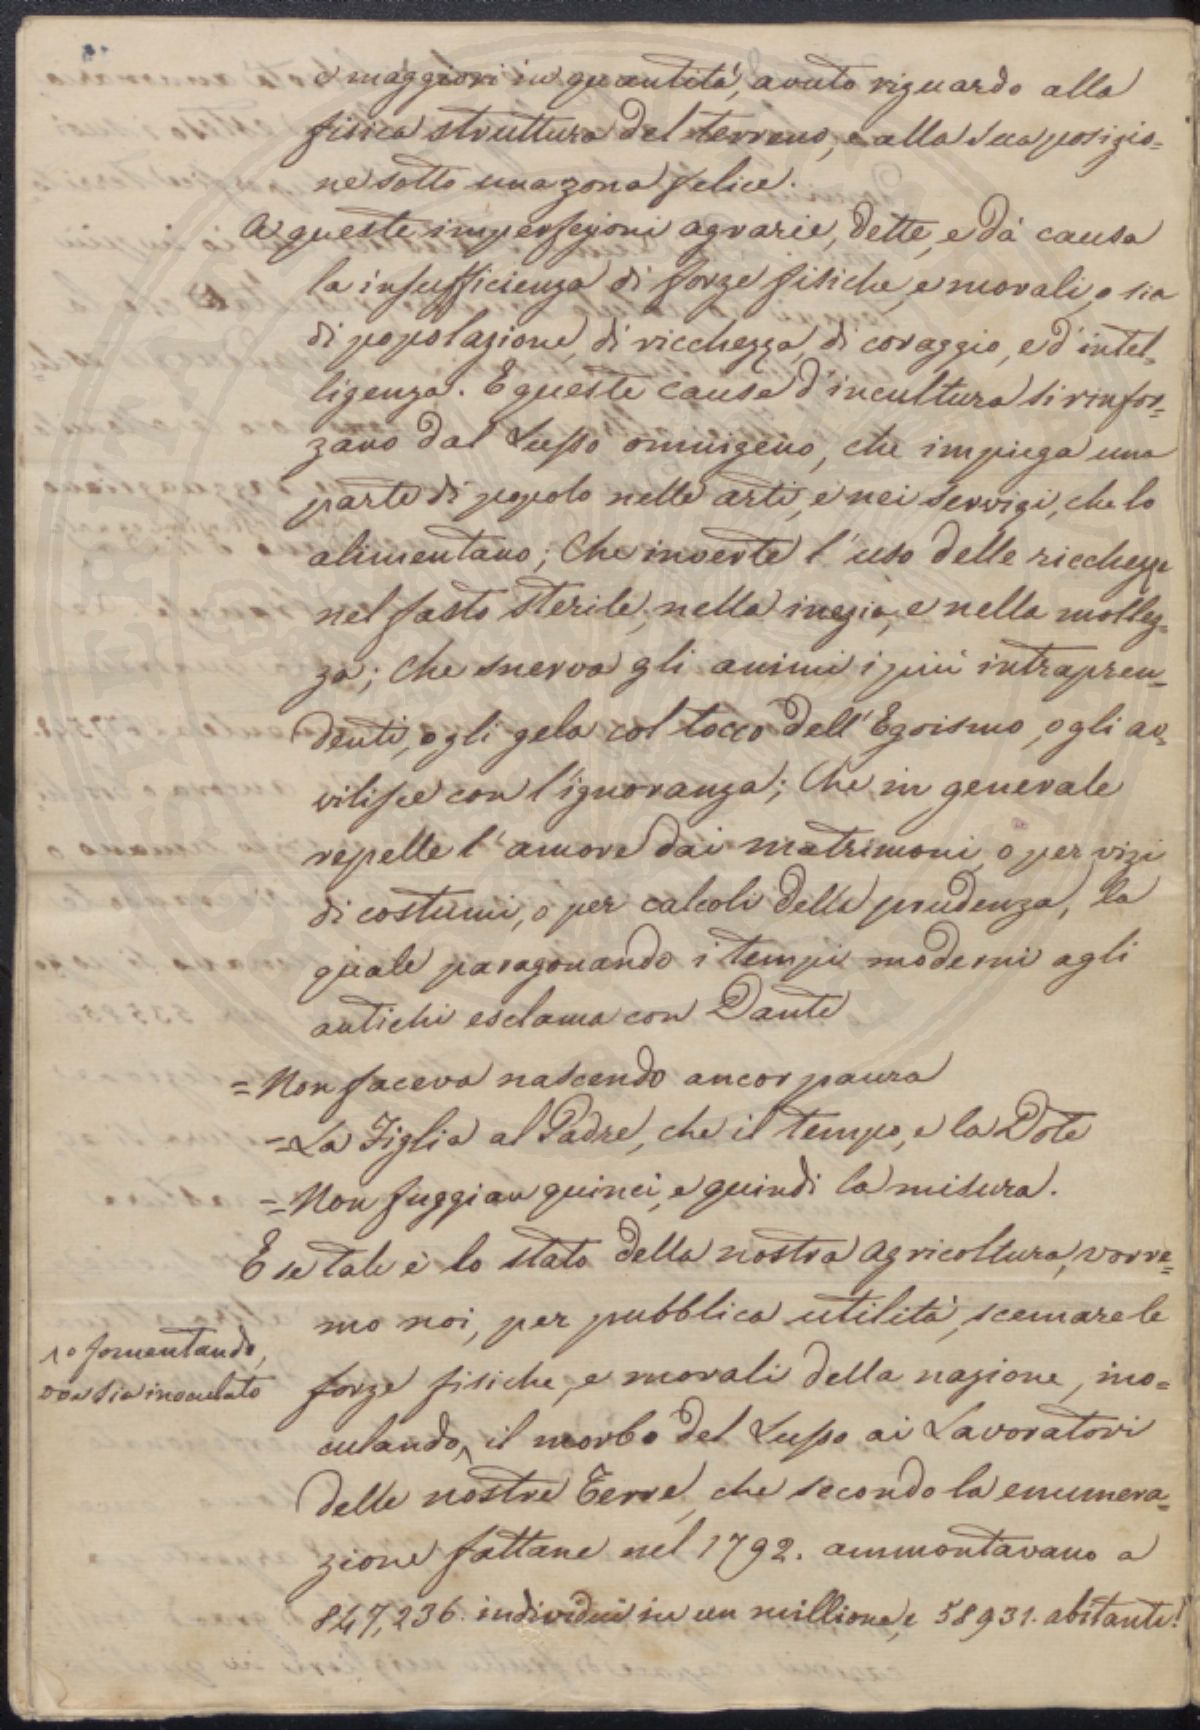 e maggiori in quantità, avuto riguardo alla
fisica struttura del terreno, e alla sua posizio=
ne sotto una zona felice.
A queste imperfezioni agrarie, dette, e dà causa
la insufficienza di forze fisiche, e morali, o sia
di popolazione, di ricchezza, di coraggio, e d'intel=
ligenza. E queste cause d'incultura si rinfor=
zano dal Lusso omnigeno, che impiega una
parte di popolo nelle arti, e nei servigi, che lo
alimentano; Che inverte l'uso delle ricchezze
nel fasto sterile, nella inezia, e nella mollez=
za; Che snerva gli animi i più intrapren=
denti, o gli gela col tocco dell'Egoismo, o gli av=
vilisce con l'ignoranza; Che in generale
repelle l'amore dai matrimoni, o per vizi
di costumi, o per calcoli della prudenza, la
quale paragonando i tempi moderni agli
antichi esclama con Dante
= Non faceva nascendo ancor paura
= La Figlia al Padre, che il tempo, e la Dote
= Non fuggian quinci, e quindi la misura.
E se tale è lo stato della nostra Agricoltura, vorre=
mo noi, per pubblica utilità, scemare le
forze fisiche, e morali della nazione, ino=
culando, il morbo del Lusso ai Lavoratori
delle nostre Terre, che secondo la enumera=
zione fattane nel 1792. ammontavano a
847,236. individui in un millione, e 58931. abitante!
o fomentando,
ove sia inoculato